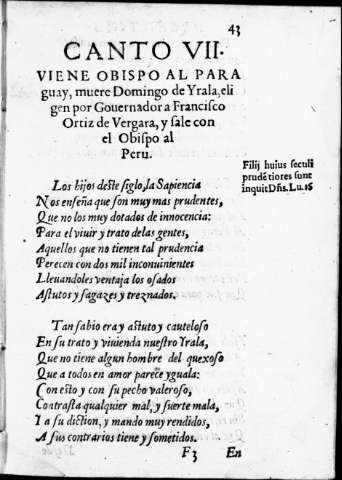 43
CANTO VII.
VIENE OBISPO AL PARA
guay, muere Domingo de Yrala, eli
gen por Gouernador a Francisco
Ortiz de Vergara, y sale con
el Obispo al
Peru.
Filij huius seculi
prudẽtiores sunt
inquit Dñs. Lu. 16
Los hijos deste siglo, la Sapiencia
Nos enseña que son muy mas prudentes,
Que no los muy dotados de innocencia:
Para el viuir y trato de las gentes,
Aquellos que no tienen tal prudencia
Perecen con dos mil inconuinientes
Lleuandoles ventaja los osados
Astutos y sagazes y treznados.
Tan sabio era y astuto y cauteloso
En su trato y viuienda nuestro Yrala,
Que no tiene algun hombre del quexoso
Que a todos en amor parece yguala:
Con esto y con su pecho valeroso,
Contrasta qualquier mal, y suerte mala,
Y a su diction, y mando muy rendidos,
A sus contrarios tiene y sometidos.
F3 En